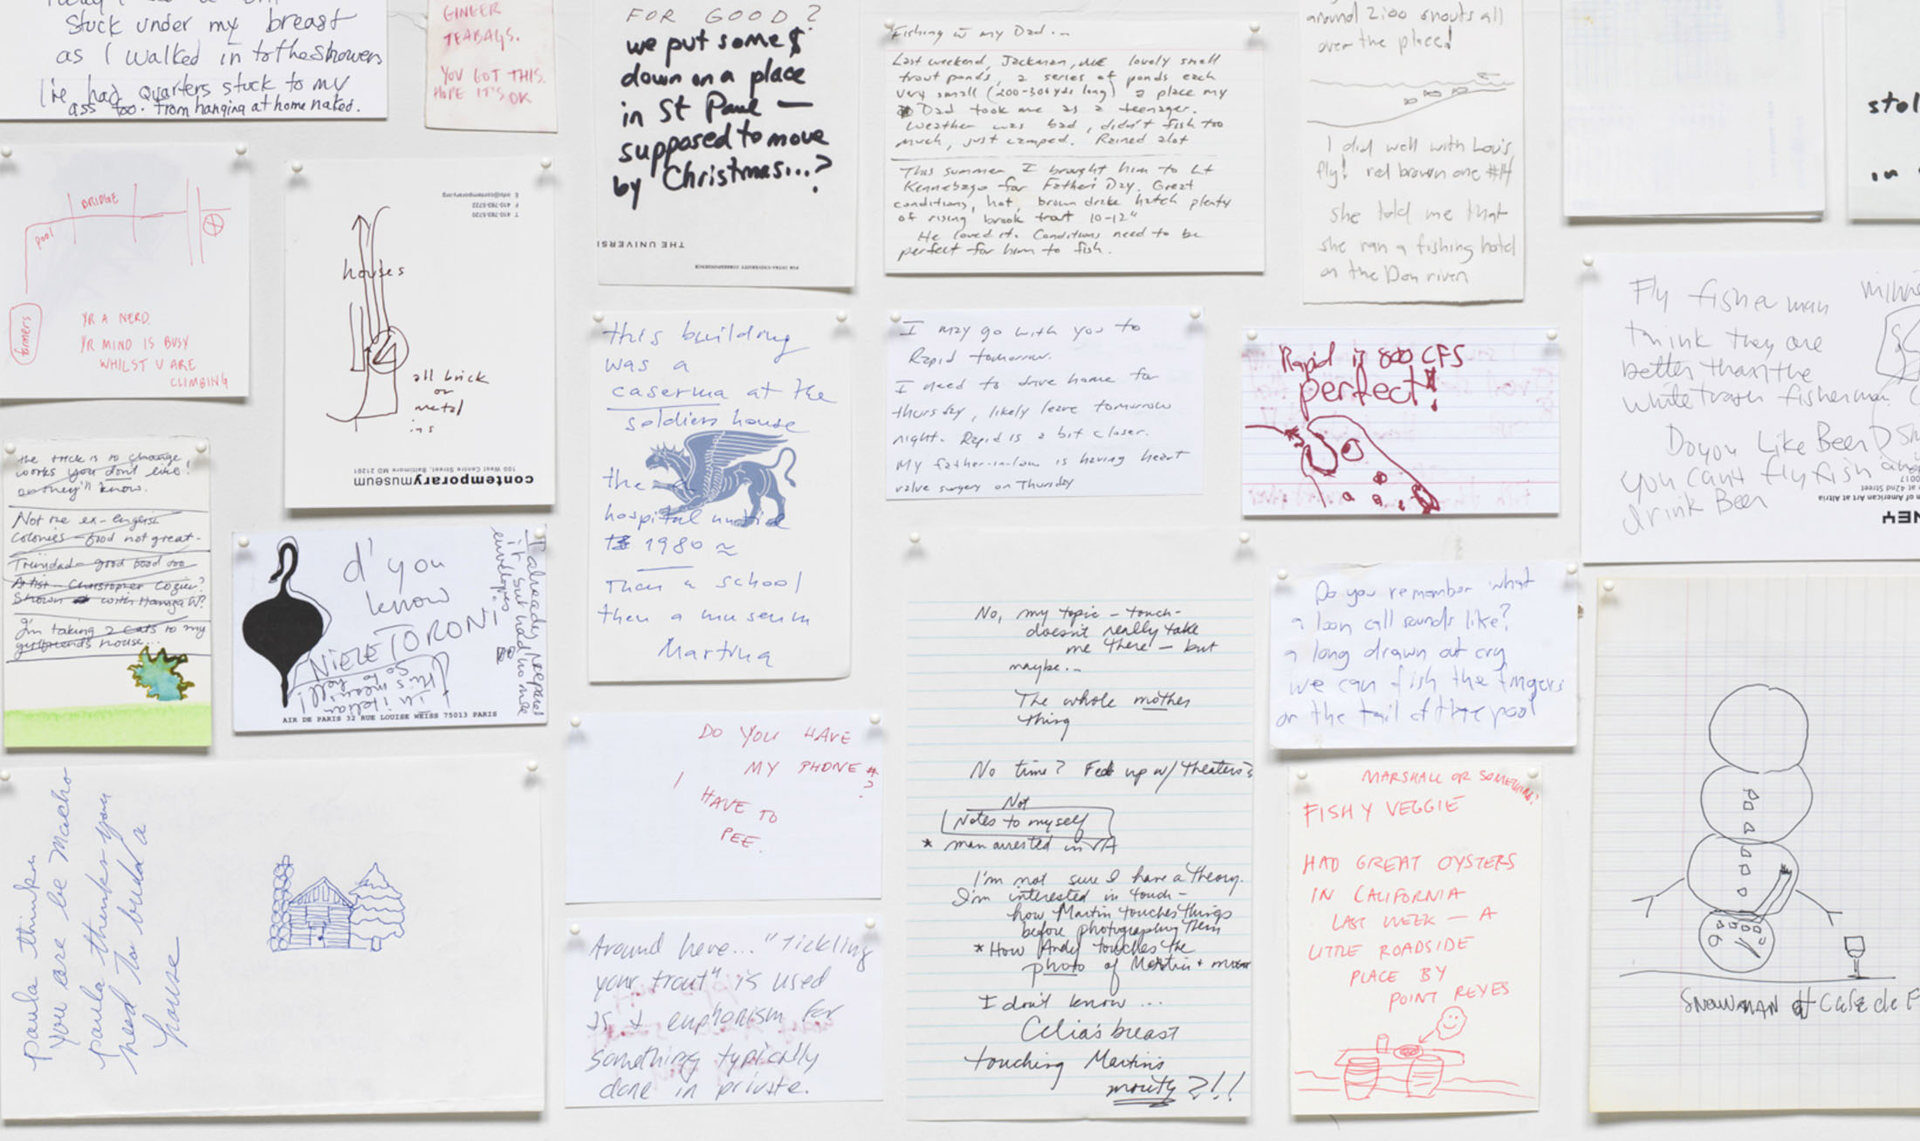 Stuck under my breast
as I walked in to the Showers
I've had quarters stuck to my
ass too. from hanging at home naked.
GINGER
TEABAGS.
YOU GOT THIS.
HOPE IT'S OK
FOR GOOD?
we put some $
down on a place
in St Paul —
supposed to move
by Christmas...?
THE UNIVERSI
Fishing w my Dad...
Last weekend, Jackman, ME lovely small
trout ponds, a series of ponds each
very small (200-300 yds long) a place my
Dad took me as a teenager.
Weather was bad, didn't fish too
much, just camped. Rained alot
This summer I brought him to Lt
Kennebago for Father's Day. Great
conditions, hot, brown drake hatch plenty
of rising brook trout 10-12"
He loved it. Conditions need to be
perfect for him to fish.
around 2:00 snouts all
over the place!
I did well with Lou's
fly! red brown one #14
she told me that
she ran a fishing hotel
on the Don river
stol
in
BRIDGE
pool
farmers
YR A NERD
YR MIND IS BUSY
WHILST U ARE
CLIMBING
T 410-783-5720
F 410-783-5722
E info@contemporary.org
houses
all brick
or
metal
ins
100 West Centre Street, Baltimore MD 21201
contemporarymuseum
this building
was a
caserma at the
soldiers house
the
hospital until
to 1980 ≈
Then a school
then a museum
Martina
I may go with you to
Rapid tomorrow.
I need to drive home for
thursday, likely leave tomorrow
night. Rapid is a bit closer.
My father-in-law is having heart
valve surgery on Thursday
Rapid is 800 CFS
perfect!
Fly fisherman
think they are
better than the
white trash fisherman
Do you Like Beer
you can't fly fish and
drink Beer
of American Art at Altria
at 42nd Street
NEY
the trick is to change
works you don't like!
or they'll know.
Not the ex-english
Colonies - food not great -
Trinidad - good food too
Artist - Christopher Cozier?
Shown with Hamza W?
I'm taking 2 cats to my
girlfriends house...
d'you
know
NIELE TORONI
in italian
this means to
go to hell!
I already prepared
it but had no more
envelopes.
AIR DE PARIS 32 RUE LOUISE WEISS 75013 PARIS
DO YOU HAVE
MY PHONE #?
I HAVE TO
PEE.
No, my topic - touch -
doesn't really take
me there - but
maybe...
The whole mother
thing
No time? Fed up w/ theaters?
Not
Notes to myself
* man arrested in VA
I'm not sure I have a theory.
I'm interested in touch -
how Martin touches things
before photographing them
* How Andy touches the
photo of Martin + mother
I don't know ...
Celia's breast
touching Martin's
mouth?!!
Do you remember what
a loon call sounds like?
a long drawn out cry
we can fish the fingers
or the tail of the pool
MARSHALL OR SOMETHING?
FISHY VEGGIE
HAD GREAT OYSTERS
IN CALIFORNIA
LAST WEEK — A
LITTLE ROADSIDE
PLACE BY
POINT REYES
SNOWMAN at Cafe de F
paula thinks
you are be Macho
paula thinks you
need to build a
house
Around here... "Tickling
your trout" is used
as a euphemism for
something typically
done in private.